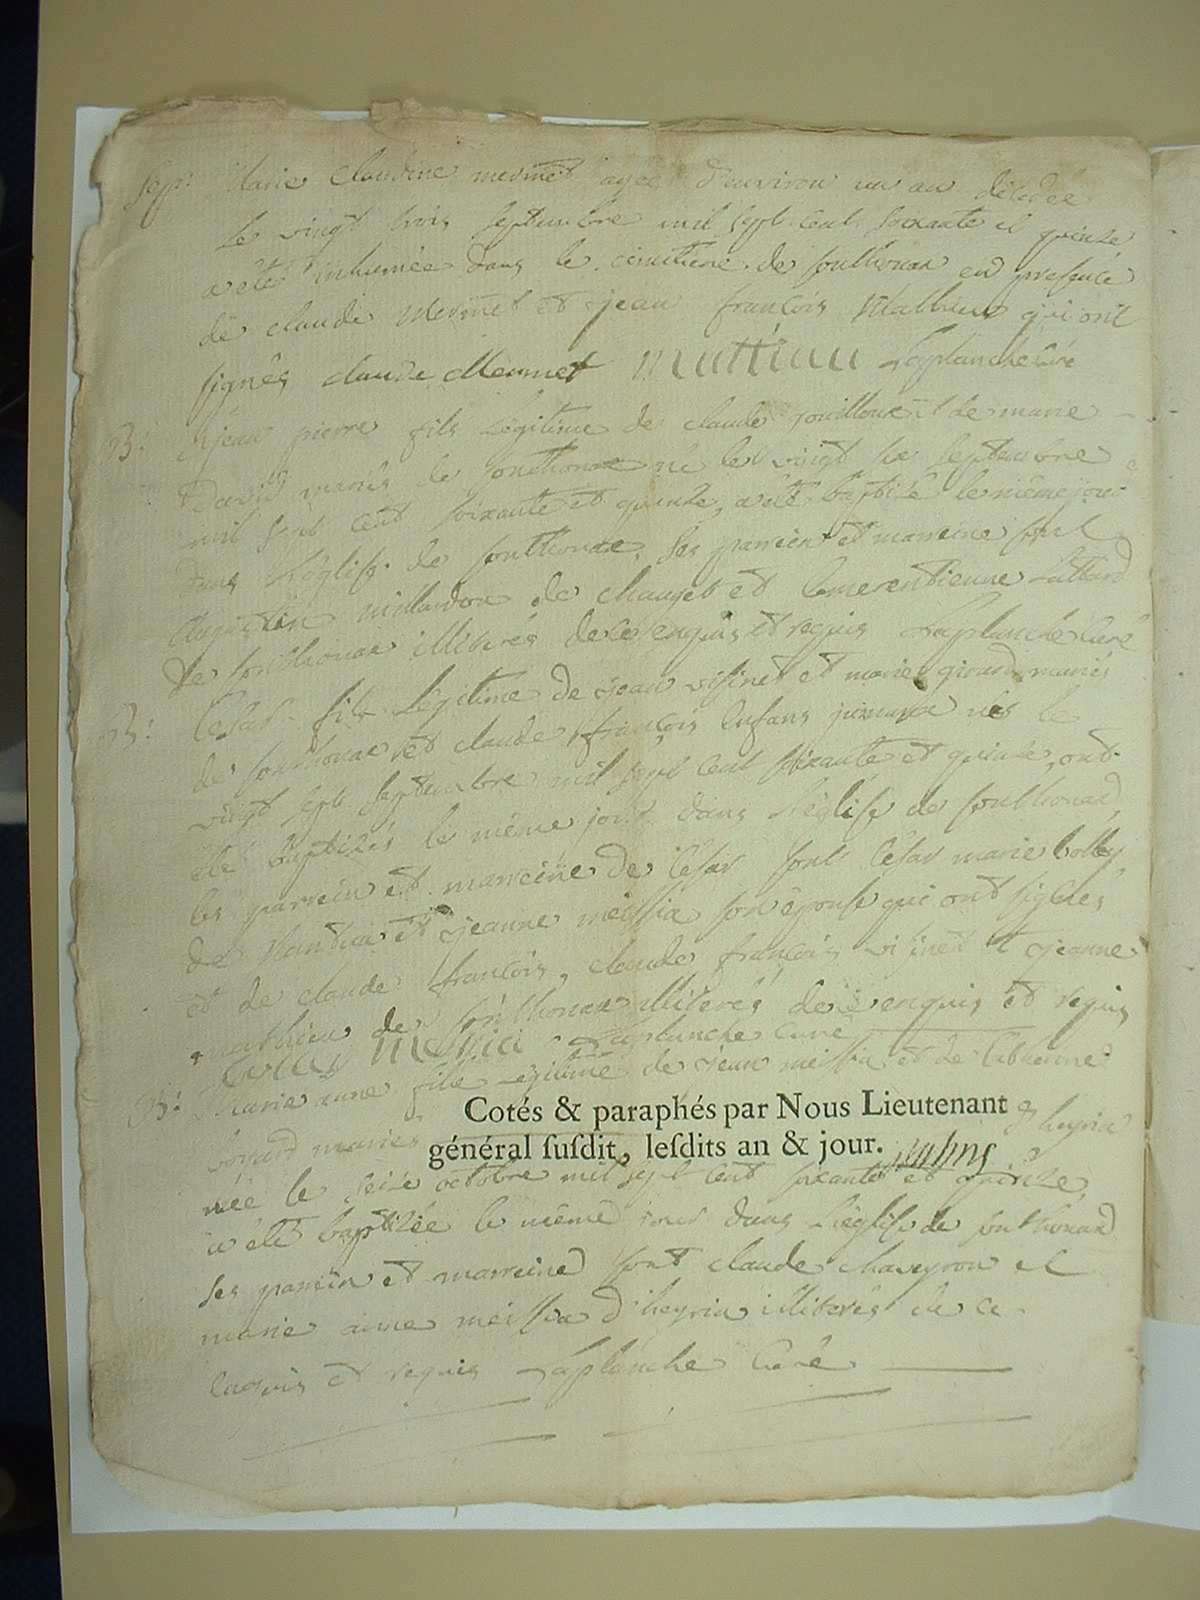 Sep: Marie Claudine mermet agée d'environ un an décédée
le vingt trois septembre mil sept cent soixante et quinze
a été inhumée dans le cimitiere de sonthonax en presence
de claude Mermet et jean françois Mathieu qui ont
signés claude Mermet Mattieu Laplanche Curé
B: jean pierre fils légitime de claude jouilloux et de marie
David mariés de sonthonax né le vingt six septembre
mil sept cent soixante et quinze, a été baptisé le même jour
dans l'église de sonthonax, ses parrein et marreine sont
Augustin millardon de et Emerentienne
de sonthonax illiterés de ce enquis et requis Laplanche Curé
B: Cesar fils légitime de jean visinet et marie girard mariés
de sonthonax et claude françois enfans jumeaux nés le
vingt sept septembre mil sept cent soixante et quinze, ont
été baptisés le même jour dans l'église de sonthonax,
les parrein et marreine de Cesar sont Cesar marie bolley
de Nantua et jeanne meissia son épouse qui ont signés
et de claude françois, claude françois visinet et jeanne
mathieu de sonthonax illiterés de ce enquis et requis
bolley Meria Laplanche Curé
B: Marie anne fille légitime de jean meissia et de Catherine
bovard mariés d'heyria
Cotés & paraphés par Nous Lieutenant
général susdit, lesdits an & jour.
née le seize octobre mil sept cent soixante et quinze,
a été baptisée le même jour dans l'église de sonthonax
ses parrein et marreine sont claude chaveyron et
marie anne meissia d'heyria illiterés de ce
enquis et requis Laplanche Curé